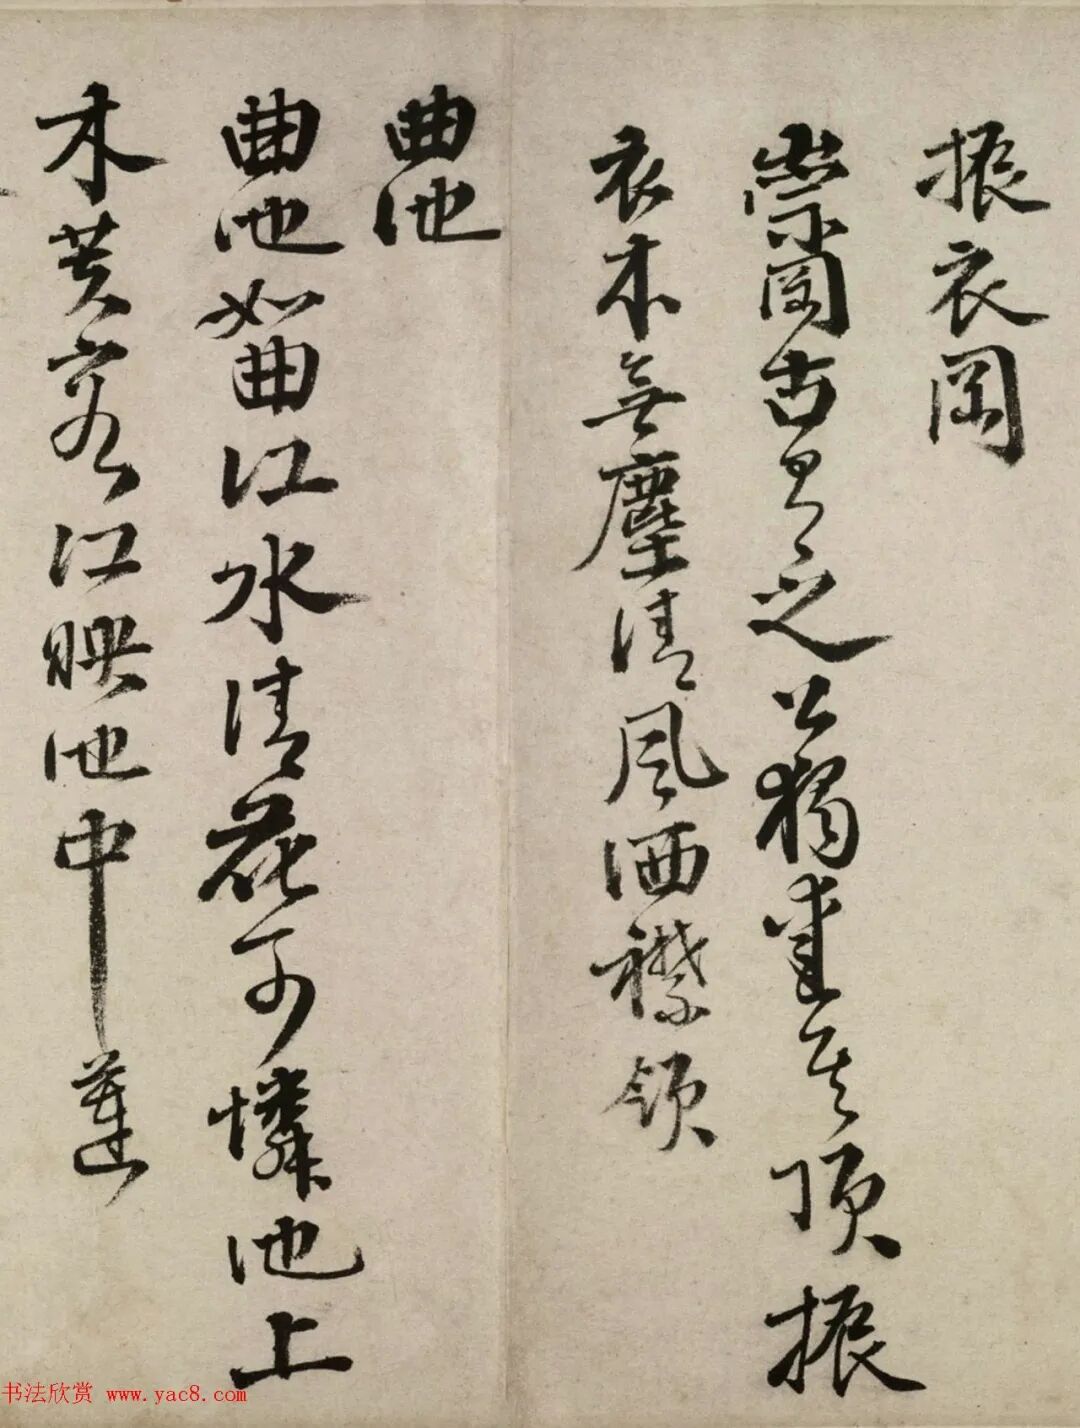 振衣岡
崇岡古有之公獨愛其頂振
衣本無塵清風洒襟領
曲池
曲池如曲江水清花可憐池上
木芙容江映池中蓮
书法欣赏 www.yac8.com